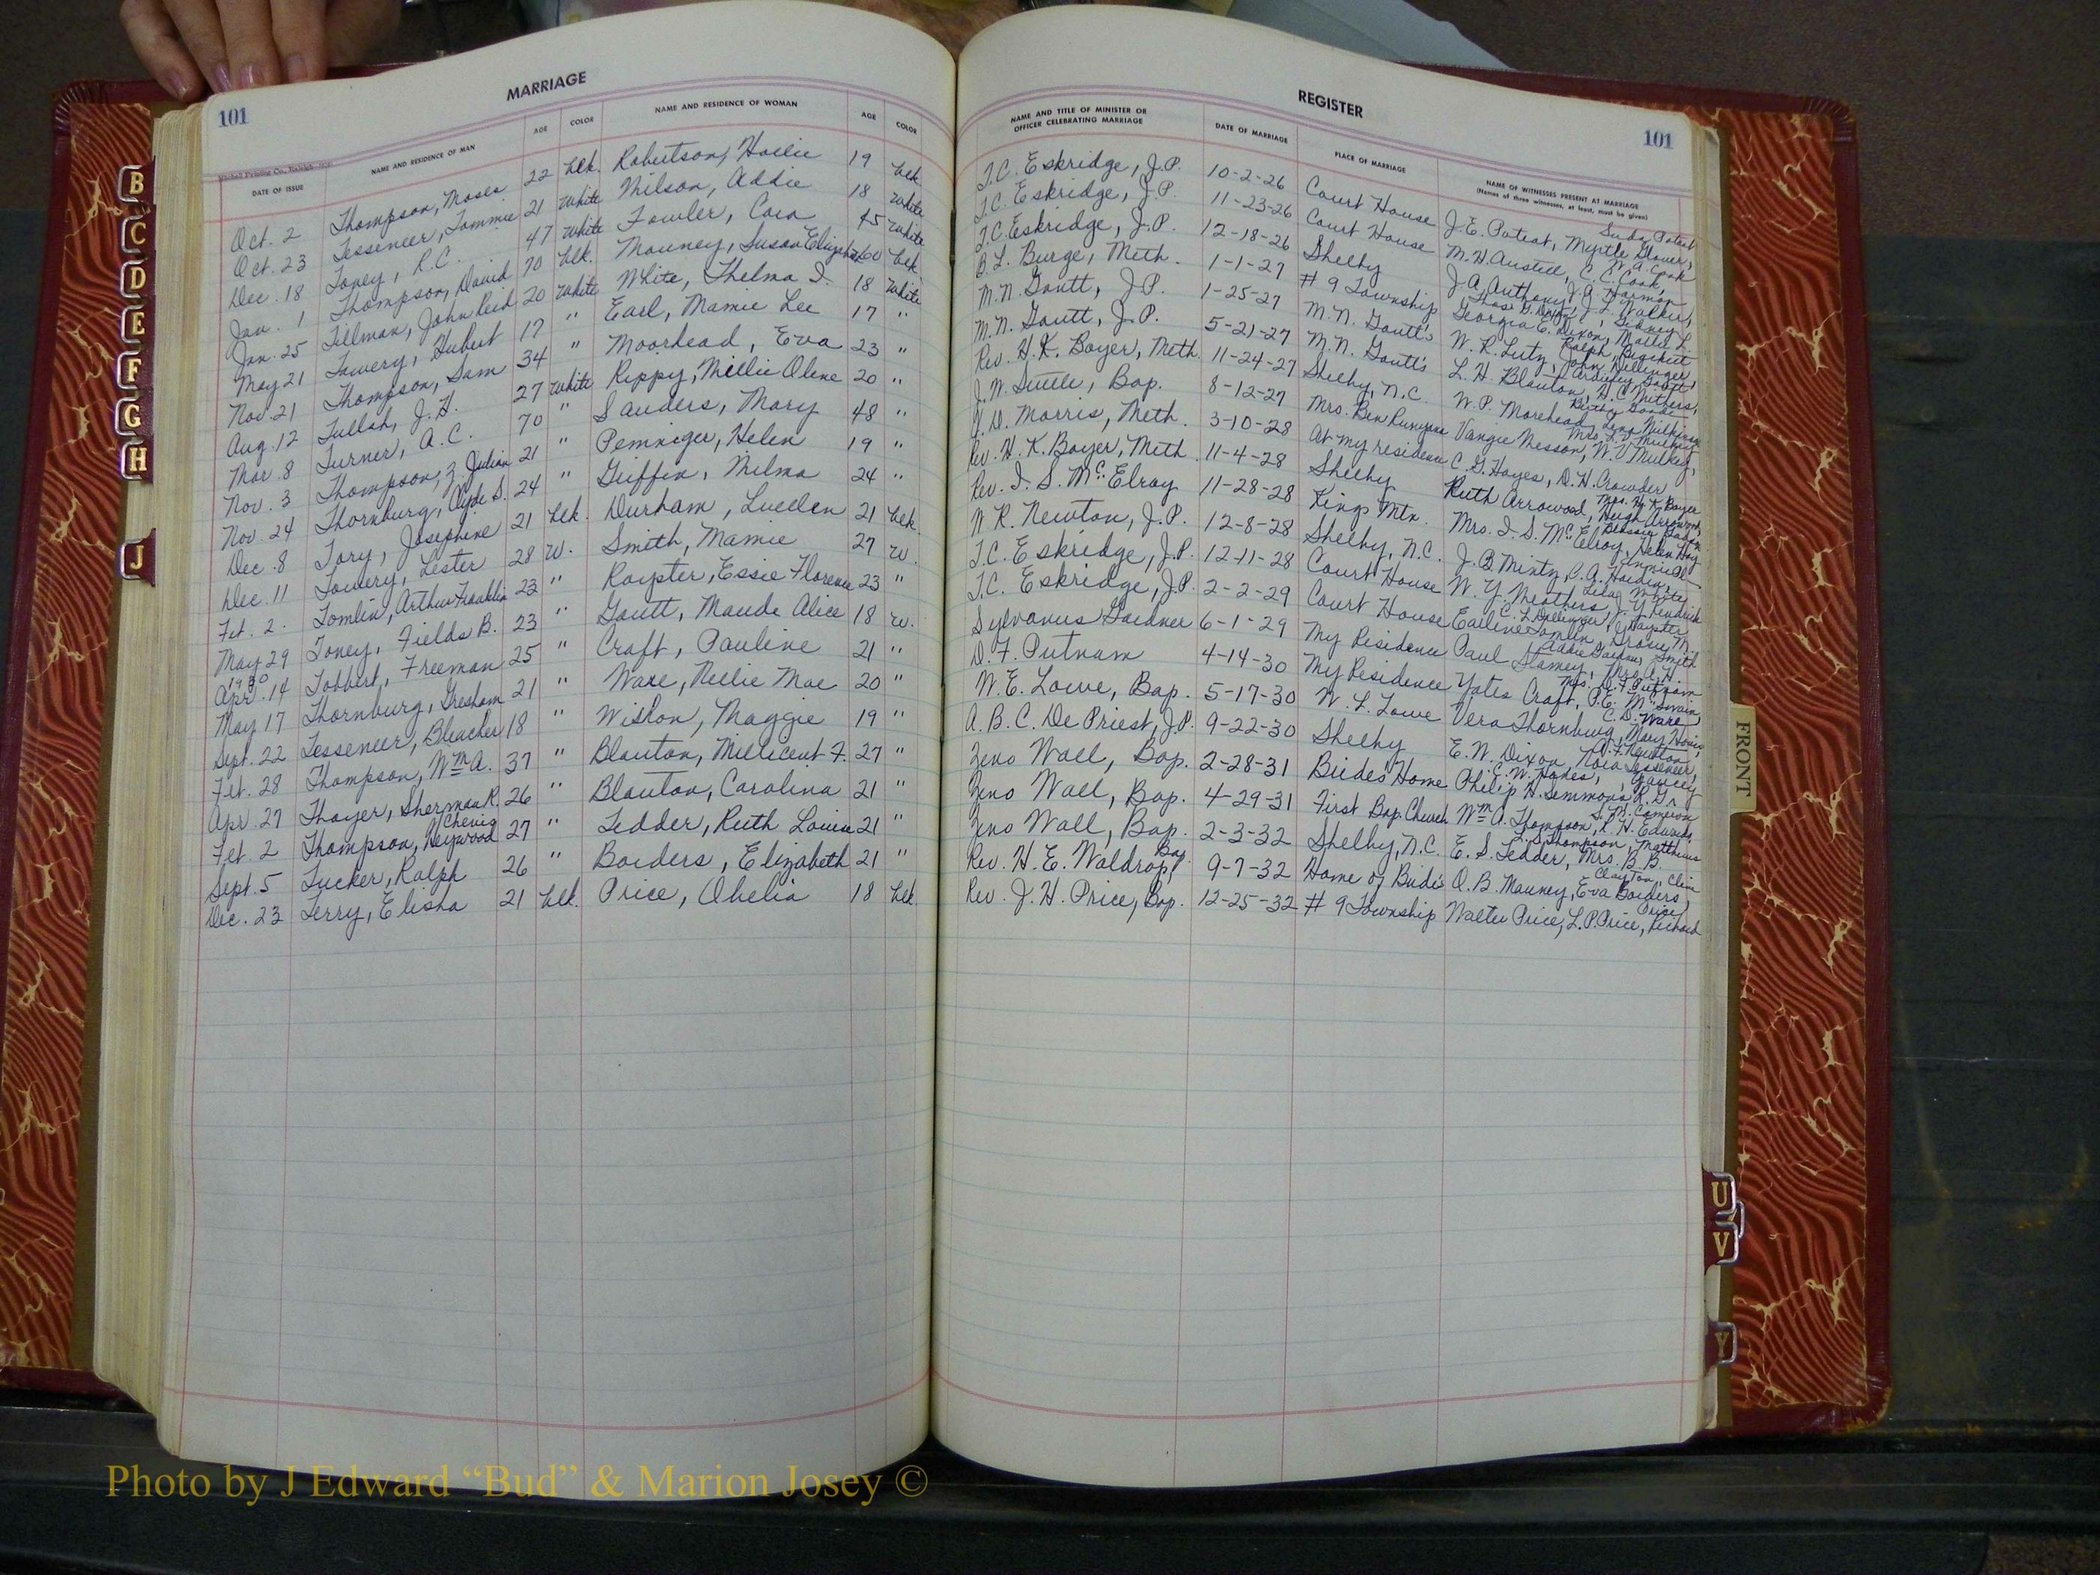 101
MARRIAGE
DATE OF ISSUE NAME AND RESIDENCE OF MAN AGE COLOR NAME AND RESIDENCE OF WOMAN AGE COLOR
Oct. 2 Thompson, Moses 22 blk. Robertson, Hailie 19 blk.
Oct. 23 Tesseneer, Tommie 21 white Wilson, Addie 18 white
Dec. 18 Toney, R.C. 47 white Fowler, Cora 45 white
Jan. 1 Thompson, David 70 blk. Mauney, Susan Elizabeth 60 blk.
Jan. 25 Tillman, John Reid 20 white White, Thelma I. 18 white
May 21 Towery, Hubert 17 " Earl, Mamie Lee 17 "
Nov. 21 Thompson, Sam 34 " Moorhead, Eva 23 "
Aug. 12 Tullah, J.H. 27 white Rippy, Millie Olene 20 "
Mar. 8 Turner, A.C. 70 " Sanders, Mary 48 "
Nov. 3 Thompson, Z. Julian 21 " Peminger, Helen 19 "
Nov. 24 Thornburg, Clyde S. 24 " Griffin, Wilma 24 "
Dec. 8 Tory, Josephine 21 blk. Durham, Luellen 21 blk.
Dec. 11 Towery, Lester 28 w. Smith, Mamie 27 w.
Feb. 2. Tomlin, Arthur Franklin 23 " Royster, Essie Florence 23 "
May 29 Toney, Fields B. 23 " Gantt, Maude Alice 18 w.
1930
Apr. 14 Tobbert, Freeman 25 " Craft, Pauline 21 "
May 17 Thornburg, Gresham 21 " Ware, Nellie Mae 20 "
Sept. 22 Tesseneer, Bleacher 18 " Wishon, Maggie 19 "
Feb. 28 Thompson, Wm A. 37 " Blanton, Millicent F. 27 "
Apr. 27 Thayer, Sherman R. 26 " Blanton, Carolina 21 "
Feb. 2 Thompson, Heywood 27 " Tedder, Ruth Louise 21 "
Sept. 5 Tucker, Ralph 26 " Borders, Elizabeth 21 "
Dec. 23 Terry, Elisha 21 blk. Price, Ohelia 18 blk.
REGISTER
101
NAME AND TITLE OF MINISTER OR
OFFICER CELEBRATING MARRIAGE DATE OF MARRIAGE PLACE OF MARRIAGE NAME OF WITNESSES PRESENT AT MARRIAGE
(Names of three witnesses, at least, must be given)
T.C. Eskridge, J.P. 10-2-26 Court House J.E. Poteat, Myrtle Glover, Suda Poteat
T.C. Eskridge, J.P. 11-23-26 Court House M.H. Austell, C.C. Cook, W.A. Cook
T.C. Eskridge, J.P. 12-18-26 Shelby J.A. Anthony, J.A. Harmon
B.L. Burge, Meth. 1-1-27 # 9 Township J.L. Walker, Sidney L.
M.N. Gantt, J.P. 1-25-27 M.N. Gantt's Georgia E. Dixon, Mattie L.
M.N. Gantt, J.P. 5-21-27 M.N. Gantt's W.R. Lutz, John Dellinger,
Rev. H.K. Boyer, Meth. 11-24-27 Shelby, N.C. L.H. Blanton, H.C. Withers,
J.W. Suttle, Bap. 8-12-27 Mrs. Ben Runyans W.P. Morehead, Lena Wilkinson
V.D. Morris, Meth. 3-10-28 At my residence Vangie Wesson, W.V. Mulkey, Mrs. L.V. Mulkey
Rev. H.K. Boyer, Meth. 11-4-28 Shelby C.G. Hayes, D.H. Crowder Mrs. H.K. Boyer
Rev. I.S. McElroy 11-28-28 Kings Mtn. Ruth Arrowood, Hugh Arrowood,
W.R. Newton, J.P. 12-8-28 Shelby, N.C. Mrs. I.S. McElroy, Helen Hay
T.C. Eskridge, J.P. 12-11-28 Court House J.B. Mintz, C.A. Hardin,
T.C. Eskridge, J.P. 2-2-29 Court House W.Y. Weathers, J.Y. Hendrick
Sylvanus Gardner 6-1-29 My Residence Earlene Tomlin, Grover M.
D.F. Putnam 4-14-30 My Residence Paul Stamey, Mrs. A.H.
W.E. Lowe, Bap. 5-17-30 W.L. Lowe Yates Craft, P.E. McSwain, Mrs. D.F. Putnam
A.B.C. DePriest, J.P. 9-22-30 Shelby Vera Thornburg, Mary C.D. Ware
Zeno Wall, Bap. 2-28-31 Brides Home E.W. Dixon, Nora Tesseneer,
Zeno Wall, Bap. 4-29-31 First Bap. Church Philip H. Simmons, R.G. S.M. Cameron
Zeno Wall, Bap. 2-3-32 Shelby, N.C. Wm A. Thompson, R.H. Edwards,
Rev. H.E. Waldrop, Bap. 9-7-32 Home of Bride's E.S. Tedder, Mrs. B.B.
Rev. J.H. Price, Bap. 12-25-32 # 9 Township O.B. Mauney, Eva Borders,
Walter Price, L.P. Price, Richard Price
B
C
D
E
F
G
H
J
FRONT
U
V
Y
Photo by J Edward “Bud” & Marion Josey ©